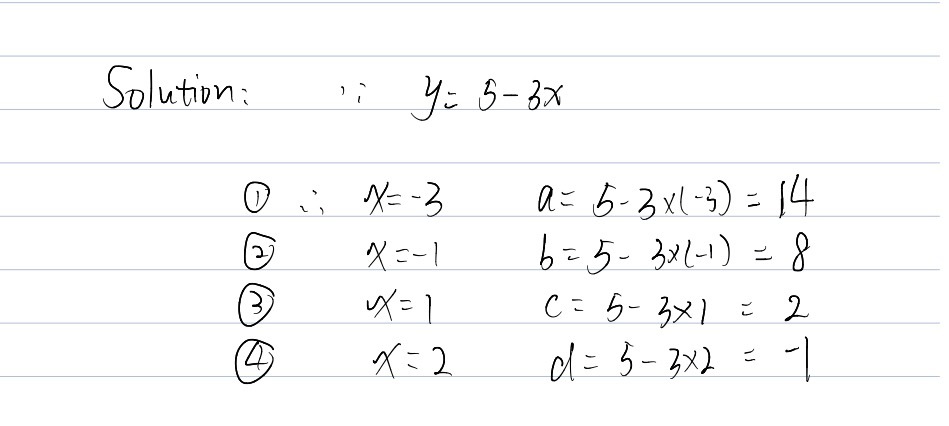 Solution: ∵ y = 5 - 3x
① ∴ x = -3 a = 5 - 3×(-3) = 14
② x = -1 b = 5 - 3×(-1) = 8
③ x = 1 c = 5 - 3×1 = 2
④ x = 2 d = 5 - 3×2 = -1